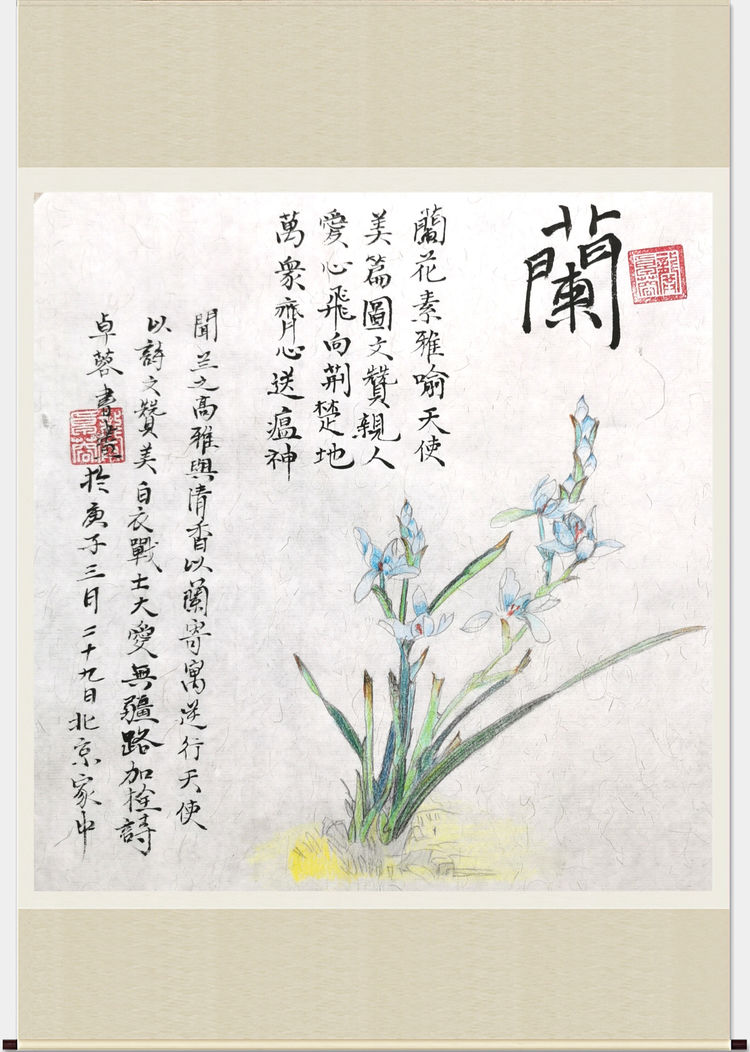 蘭
蘭花素雅喻天使
美篇圖文贊親人
愛心飛向荊楚地
萬衆齊心送瘟神
聞兰之高雅與清香以蘭寄寓逆行天使
以詩文贊美白衣戰士大愛無疆路加栓詩
卓蓉書畫於庚子三月二十九日北京家中